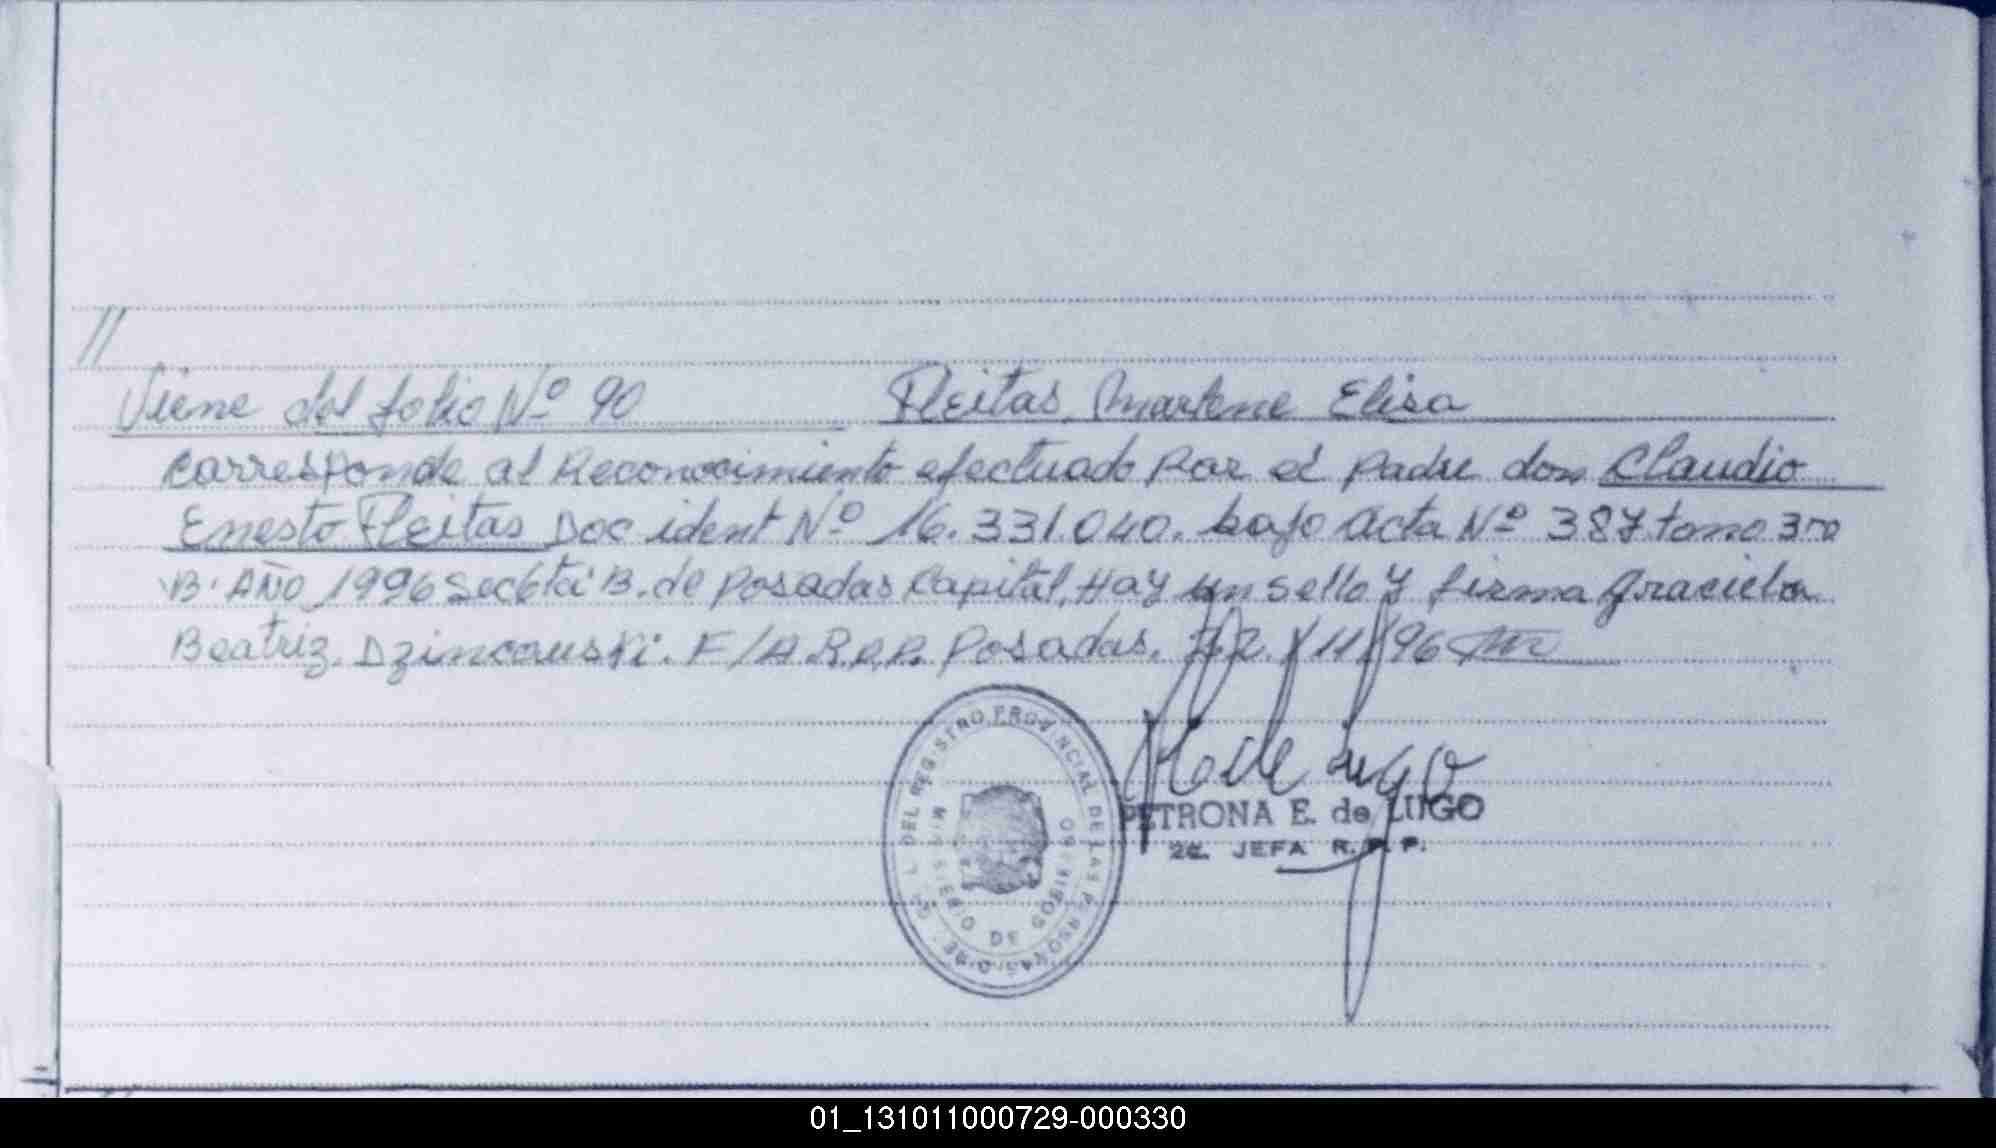 //
Viene del folio Nº 90 Fleitas, Marlene Elisa
Corresponde al Reconocimiento efectuado Por el Padre don Claudio
Enesto Fleitas Doc ident Nº 16.331.040. bajo Acta Nº 387 tomo 3ro
"B" AÑO 1996 Secc 6ta B. de Posadas Capital. Hay un sello y firma Graciela
Beatriz Dzincouski. F/A R.P.P. Posadas, /11/96
DEL REGISTRO PROVINCIAL DE LAS PERSONAS
MINISTERIO DE GOBIERNO
PETRONA E. de LUGO
2a. JEFA R. P. P.
01_131011000729-000330